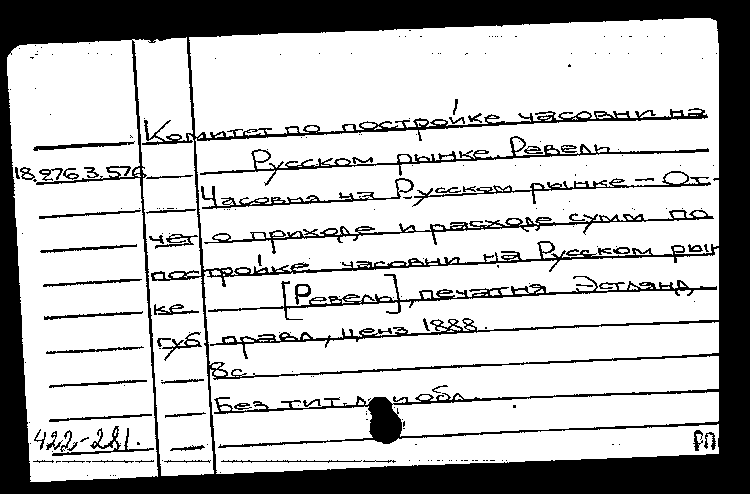 Комитет по постройке часовни на
18.276.3.576 Русском рынке. Ревель
Часовня на Русском рынке – От-
чет о приходе и расходе сумм по
постройке часовни на Русском рын
ке [Ревель], печатня Эстлянд.
губ. правл., ценз 1888.
8с.
Без тит. л. и обл.
422-281.
РП